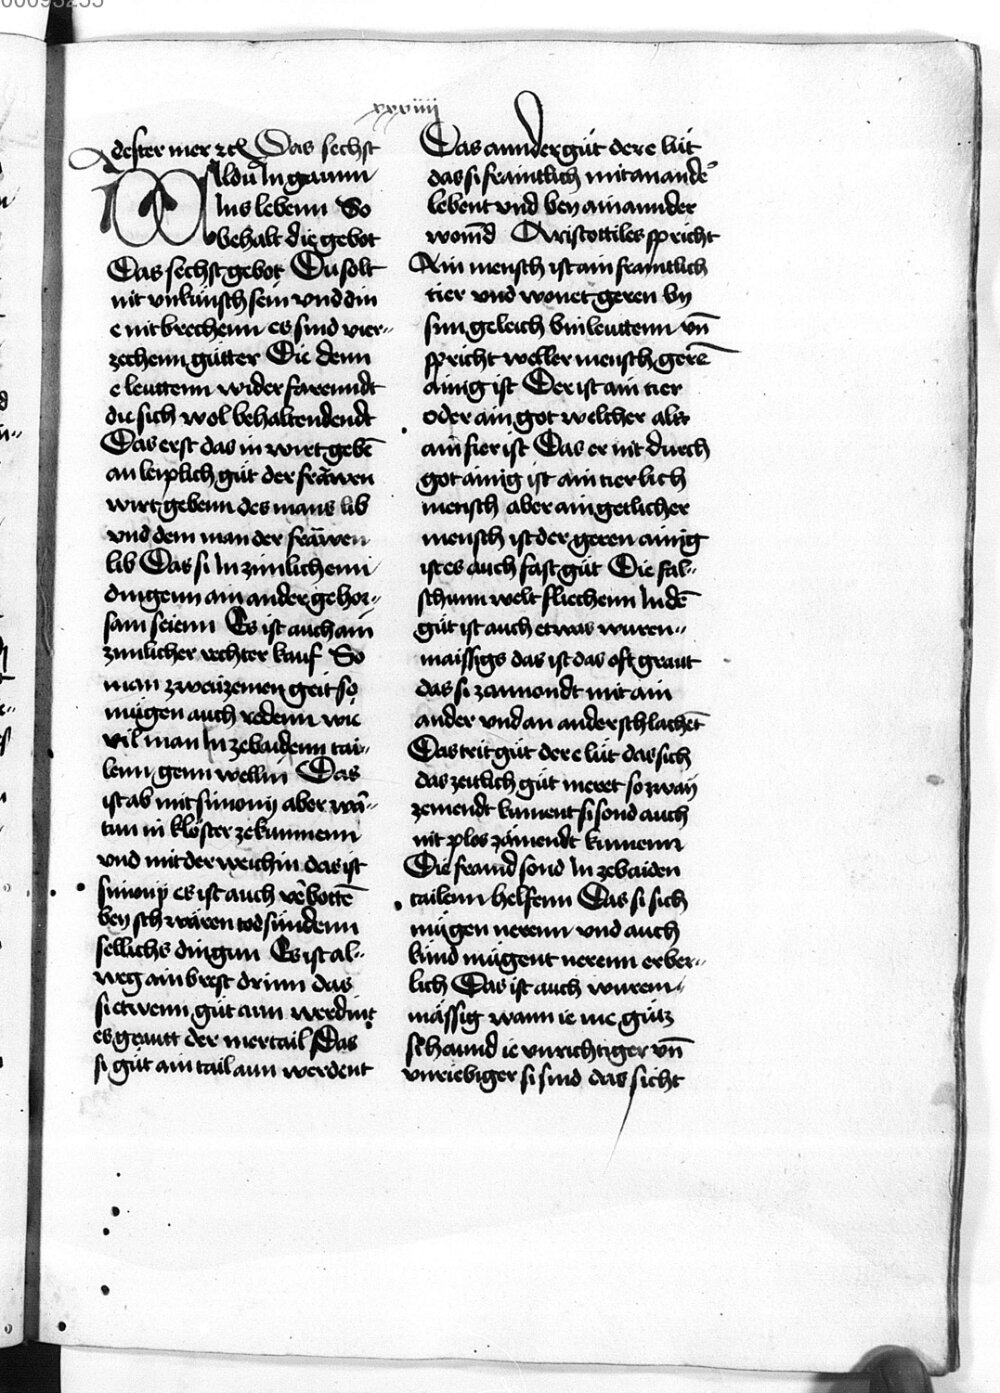 00093255
xxxviiij
dester mer ꝛc̃ Das sechst
Wildu In genem
Ins lebenn So
behalt die gebot
Das sechst gebot Du solt
nit vnkünsch sein vnd din
e nit brechenn es sind vier-
zechenn gütter Die denn
e leuttenn wider farenndt
die sich wol behaltendendt
Das erst das in wirt gebē
an leiplich güt der fräwen
wirt gebenn des mans lib
vnd dem man der fräwen
lib Das si In zimlichenn
dingenn ain ander gehor-
sam seienn Es ist auch ain
zimlicher rechter kauf So
man zwen zemen geit so
mügen auch redenn wie
vil man In zebaidenn tai-
lenn genn wellin Das
ist ab mit simonij aber
tun in klöster zekummenn
vnd mit der weichin das ist
simonij es ist auch verbottē
bey schwären todsündenn
sellichs dingenn Es ist al-
weg ain brest drinn das
si etwenn güt ann werdint
es geratt der mertail Das
si güt ain tail ann werdent
Das annder güt der e lüt
das si früntlich mit anandē
lebent vnd bey ainannder
wonnd Aristottiles spricht
Ain mensch ist ain früntlich
tier vnd wonet geren by
sim geleich bin leuttenn vn̄
spricht weller mensch gerē
ainig ist Der ist ain tier
oder ain got welcher als
ain tier ist Das er nit durch
got ainig ist ain tierlich
mensch aber ain getlicher
mensch ist der geren ainig
ist es auch fast güt Die fal-
schenn welt fliechenn In dē
güt ist auch etwas wuren-
maissigs das ist das oft geratt
das si zannondt mit ain
ander vnd an ander schlachēt
Das trit güt der e lüt das sich
das zeitlich güt meret so zway
zemendt kument si sond auch
nit plos zämendt kumenn
Die fraind sond In zebaiden
tailenn helfenn Das si sich
mügen nerenn vnd auch
kind mügent nerenn erber-
lich Das ist auch wurem-
mässig wann ie me gütz
schannd ie vnrichtiger vn̄
vnriebiger si sind das sicht